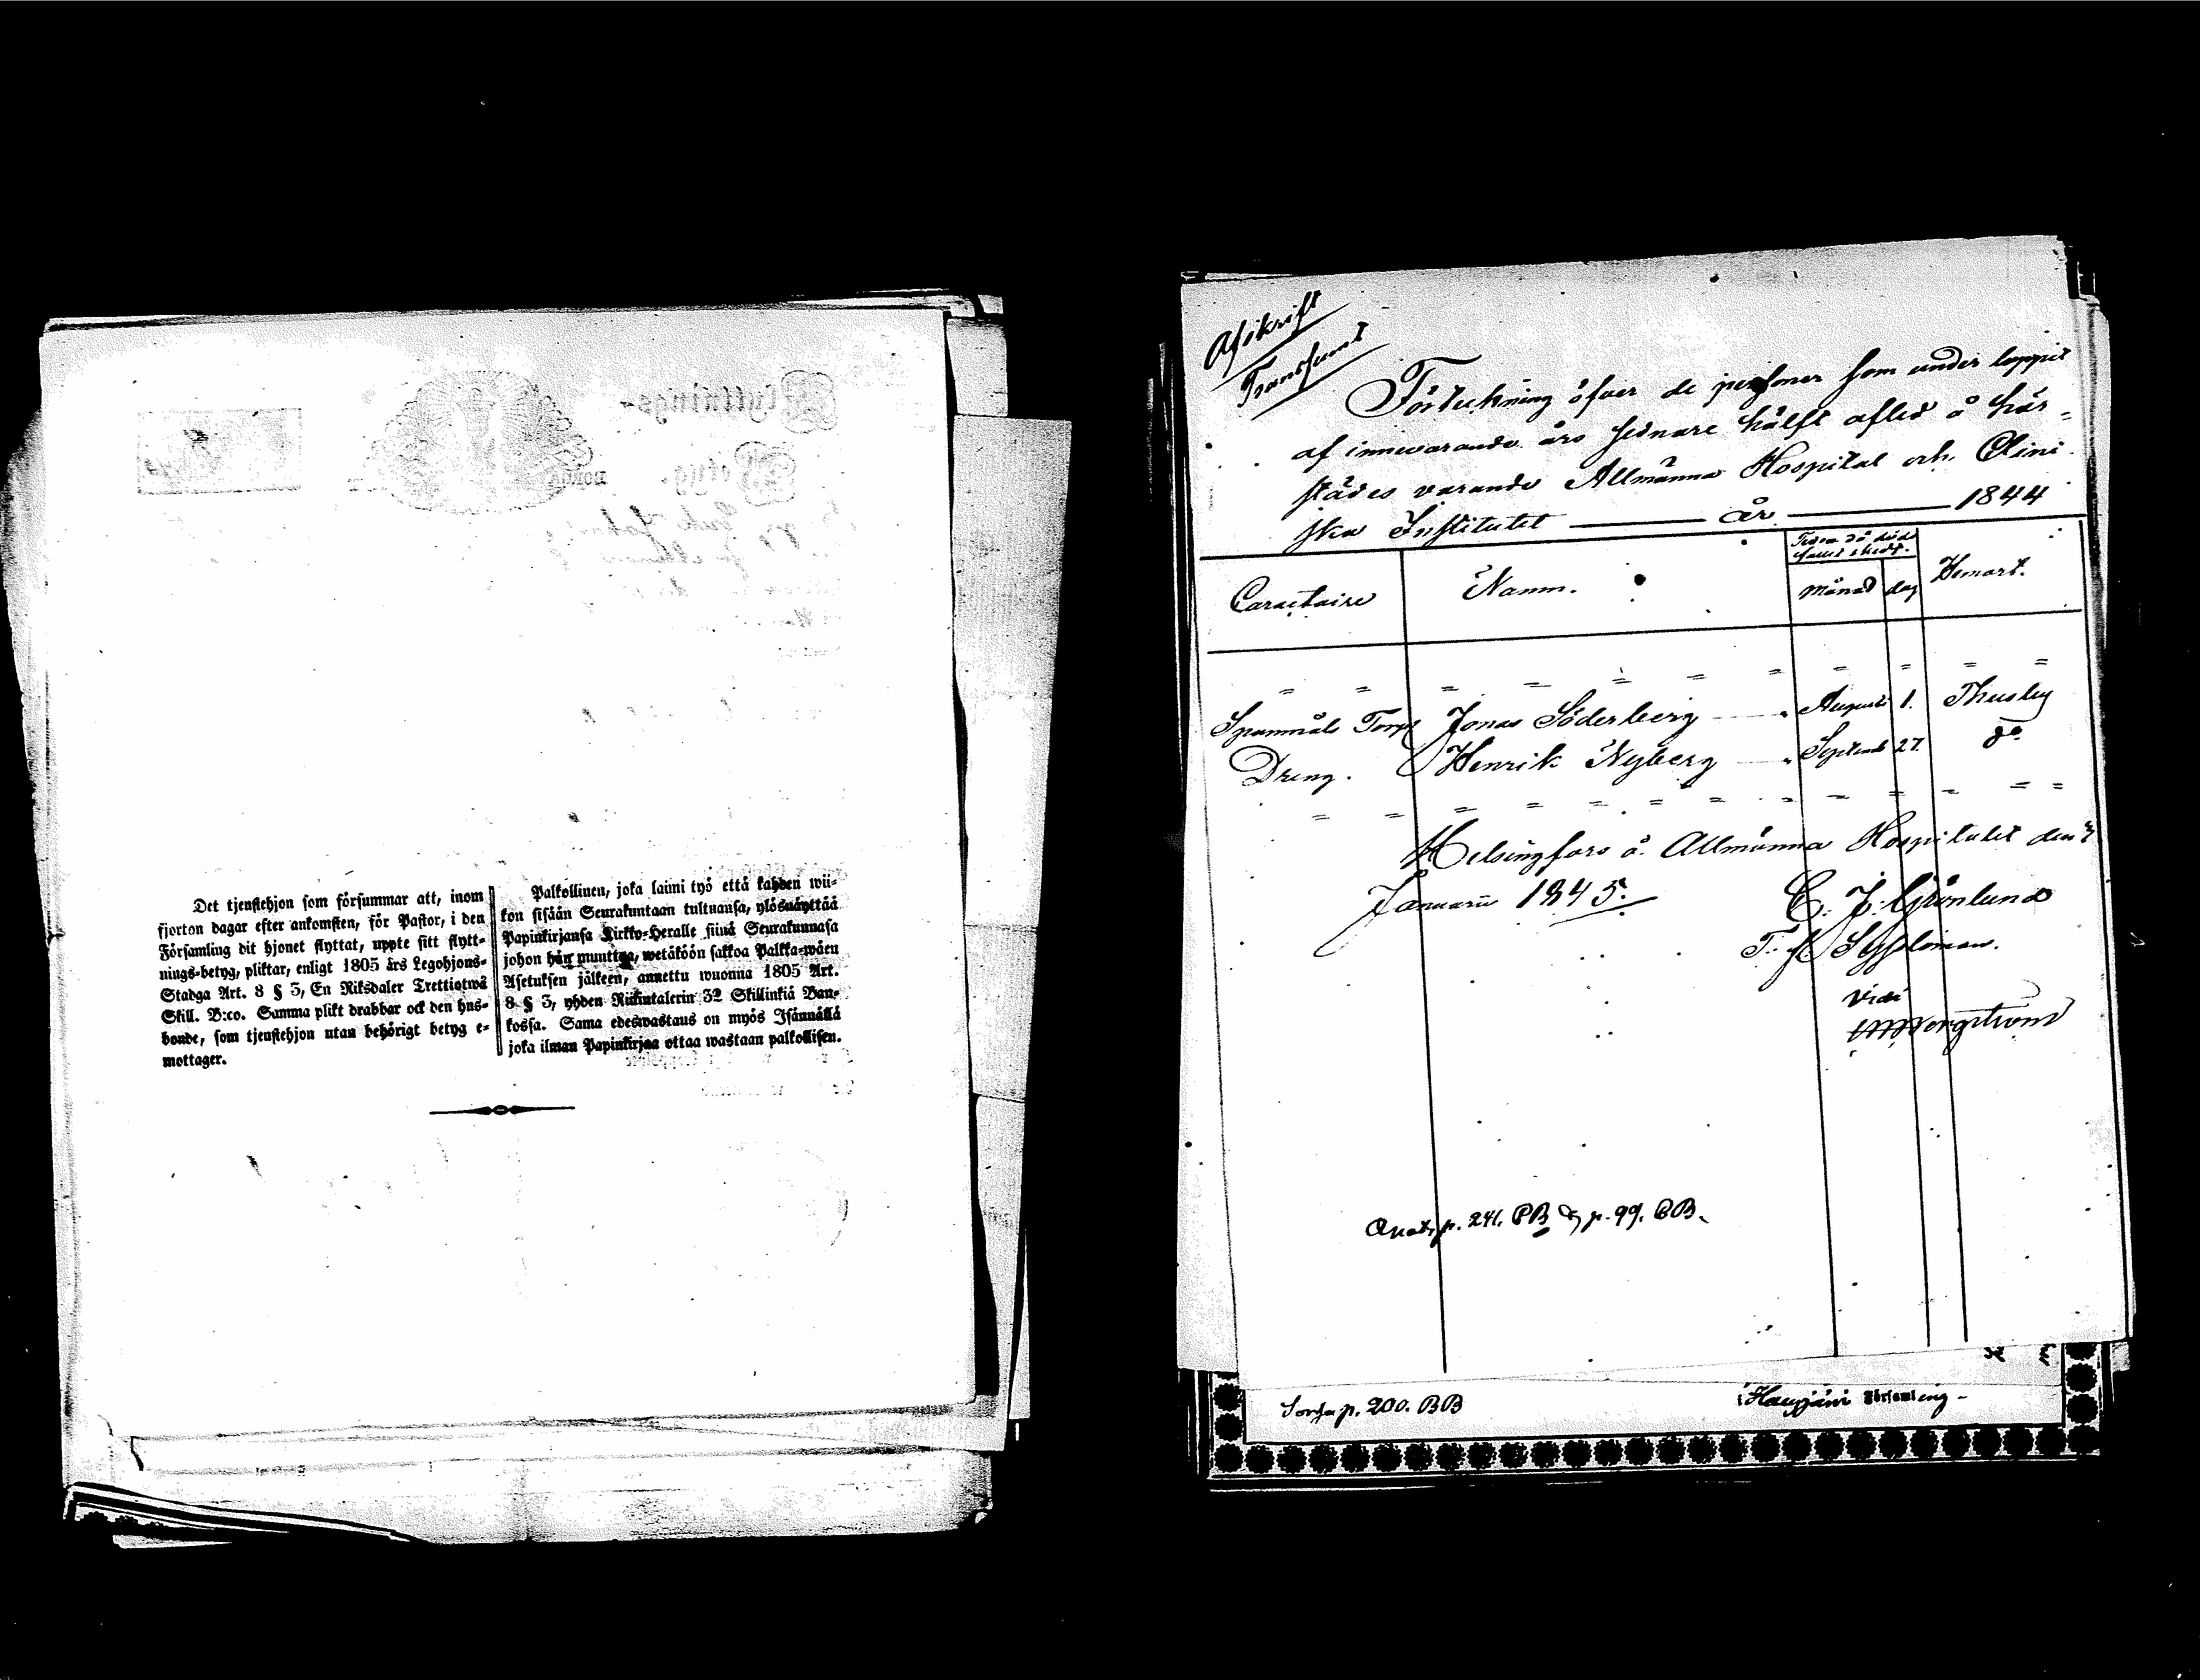 Flyttnings-
Betyg.
Det tjenstehjon som försummar att, inom
fjorton dagar efter ankomsten, för Pastor, i den
Församling dit hjonet flyttat, uppte sitt flytt-
nings-betyg, pliktar, enligt 1805 års Legohjons-
Stadga Art. 8 § 3, En Riksdaler Trettiotwå
Skill. B:co. Samma plikt drabbar ock den hus-
bonde, som tjenstehjon utan behörigt betyg e-
mottager.
Palkollinen, joka laimi työ että kahden wii-
kon sisään Seurakuntaan tultuansa, ylösnäyttää
Papinkirjansa Kirkko-Heralle siinä Seurakunnasa
johon hän munttaa, wetäköön sakkoa Palkka-wäen
Asetuksen jälkeen, annettu wuonna 1805 Art.
8 § 3, yhden Riikintalerin 32 Skillinkiä Ban-
kossa. Sama edeswastaus on myös Isännällä
joka ilman Papinkirjaa ottaa wastaan palkollisen.
Afskrift
Transsumt
Förteckning öfver de personer som under loppet
af innevarande års sednare hälft afled å här-
städes varande Allmänna Hospital och Clini
ska Institutet — år — 1844
Caractaire Namn. Tiden då död
samt skedt.
månad dag Hemort.
= = = = = = = = = = =
Spanmåls Torp Jonas Söderberg Augusti 1. Thusby
Dreng. Henrik Nyberg Septemb 27. do
= = = = = = = = = = = =
Helsingfors å Allmänna Hospitalet den
Januarii 1845. C. J. Grönlund
T. f. Syssloman.
Vidi
Borgström
Anot. p. 241. PB & p. 99. BB.
p. 200. BB Hausjärvi Församling -